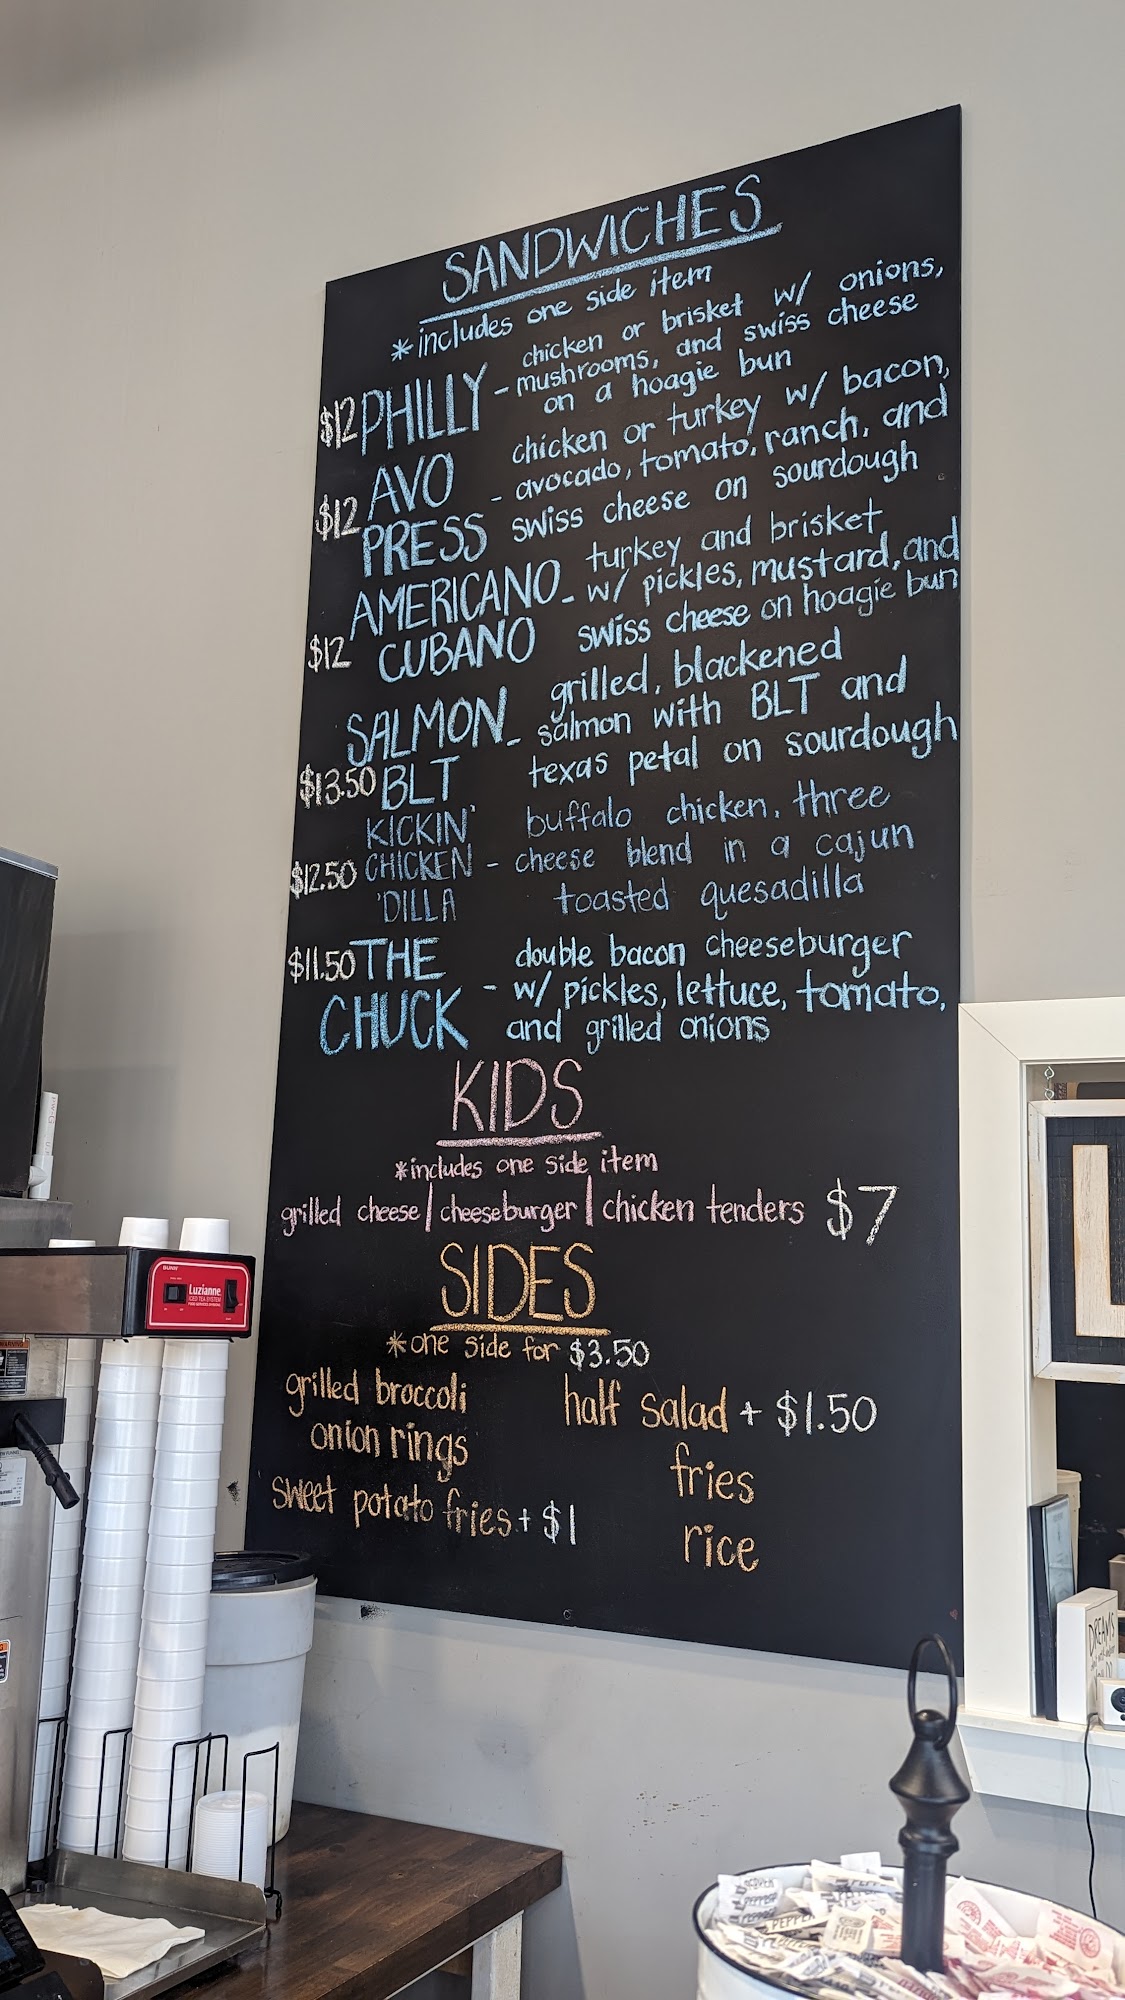 SANDWICHES
*includes one side item
$12 PHILLY - chicken or brisket w/ onions,
mushrooms, and swiss cheese
on a hoagie bun
$12 AVO
PRESS - chicken or turkey w/ bacon,
avocado, tomato, ranch, and
swiss cheese on sourdough
AMERICANO - turkey and brisket
$12 CUBANO w/ pickles, mustard, and
swiss cheese on hoagie bun
SALMON - grilled, blackened
$13.50 BLT salmon with BLT and
texas petal on sourdough
KICKIN' buffalo chicken, three
$12.50 CHICKEN - cheese blend in a cajun
'DILLA toasted quesadilla
$11.50 THE double bacon cheeseburger
CHUCK - w/ pickles, lettuce, tomato,
and grilled onions
KIDS
*includes one side item
grilled cheese | cheeseburger | chicken tenders $7
SIDES
*one side for $3.50
grilled broccoli
onion rings
sweet potato fries + $1
half salad + $1.50
fries
rice
BUNN
Luzianne
ICED TEA SYSTEM
DREAMS
PEPPER
PEPPER